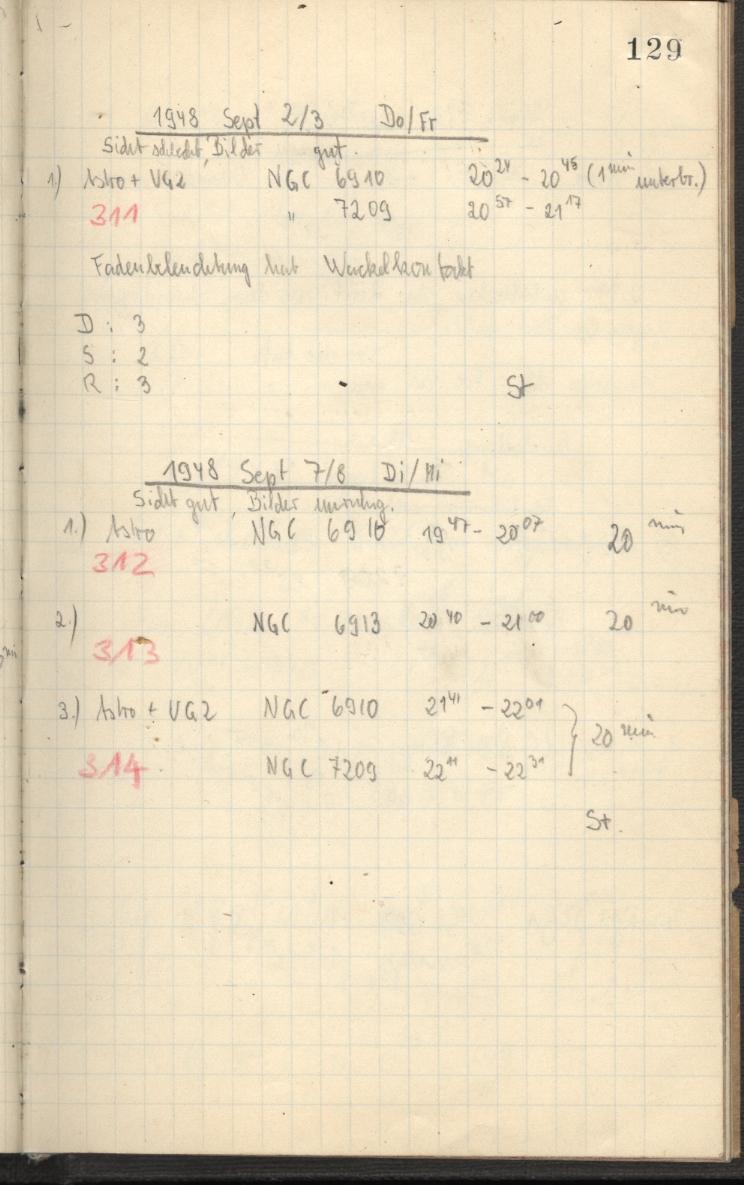 129
1948 Sept 2/3 Do/Fr
Sicht schlecht, Bilder gut.
1.) Astro + VG2 NGC 6910 20²⁴ - 20⁴⁵ (1 min unterbr.)
311 " 7209 20⁵⁷ - 21¹⁷
Fadenbeleuchtung hat Wackelkontakt
D : 3
S : 2
R : 3 St
1948 Sept 7/8 Di/Mi
Sicht gut, Bilder unruhig.
1.) Astro NGC 6910 19⁴⁷ - 20⁰⁷ 20 min
312
2.) NGC 6913 20⁴⁰ - 21⁰⁰ 20 min
313
3.) Astro + VG2 NGC 6910 21⁴¹ - 22⁰¹
20 min
314 NGC 7209 22¹¹ - 22³¹
St.